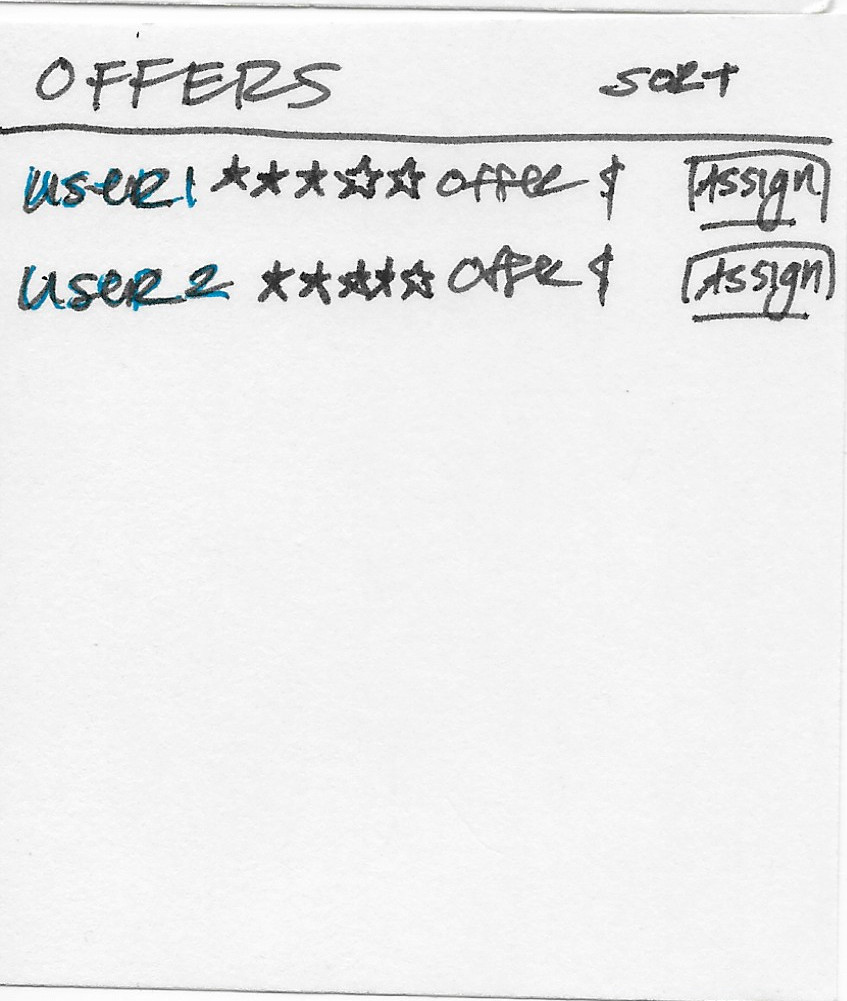 OFFERS SORT
USER1 ★★★☆☆ OFFER $ Assign
USER2 ★★★★☆ OFFER $ Assign